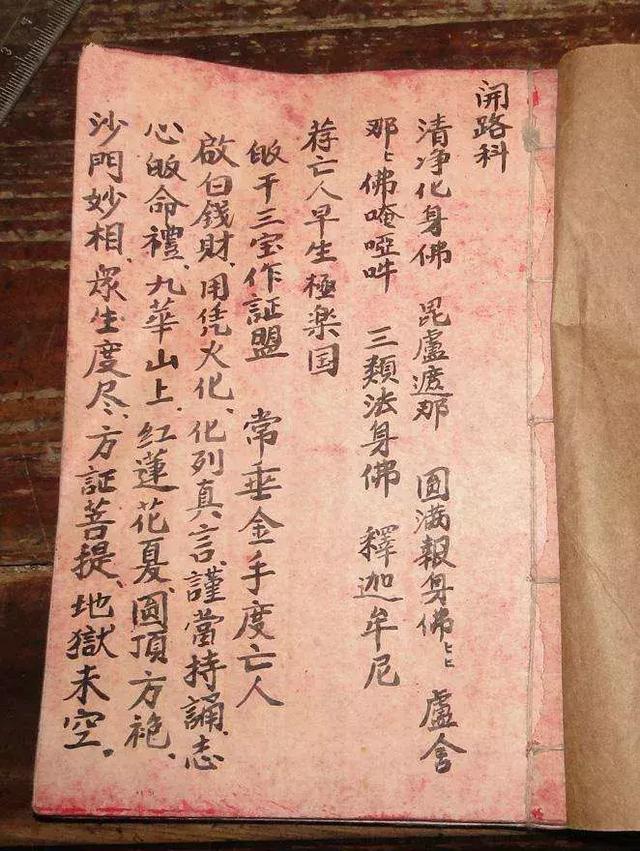 開路科
清净化身佛 毘盧遮那 圓满報身佛〻 盧舍
那〻佛唵啞吽 三類法身佛 釋迦牟尼
荐亡人早生極楽国
皈干三宝作証盟 常垂金手度亡人
啟白錢財、用凭火化、化列真言、謹當持誦、志
心皈命禮、九華山上、红蓮花夏、圓頂方袍、
沙門妙相、衆生度尽、方証菩提、地獄未空。